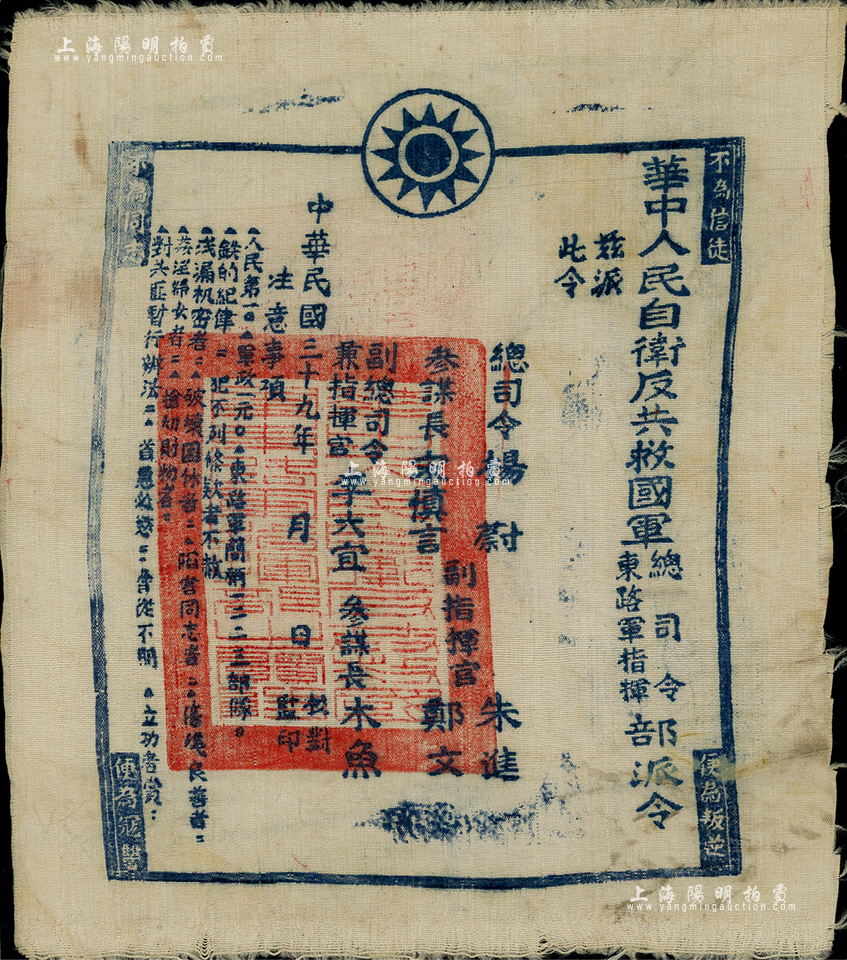 上海陽明拍賣
www.yangmingauction.com
不為信徒
便為叛逆
華中人民自衛反共救國軍總司令部派令
東路軍指揮
茲派
此令
總司令楊蔚
副指揮官
朱進
鄭文
參謀長
慎言
副總司令
兼指揮官
大宜
參謀長木魚
中華民國三十九年 月 日
校對
監印
注意事項
人民第一〇▲軍政一元〇▲東路軍簡稱一二二三部隊。
▲鉄的紀律=犯不列條款者不赦
▲浅漏机密者=▲破壞團体者=▲陷害同志者=▲傷殘良善者=
▲姦淫婦女者=▲搶劫財物者=
▲對共匪暫行辦法=▲首惡必懲=脅從不問▲立功者賞:
不為同志
便為寇讐
上海陽明拍賣
www.yangmingauction.com
上海陽明拍賣
www.yangmingauction.com